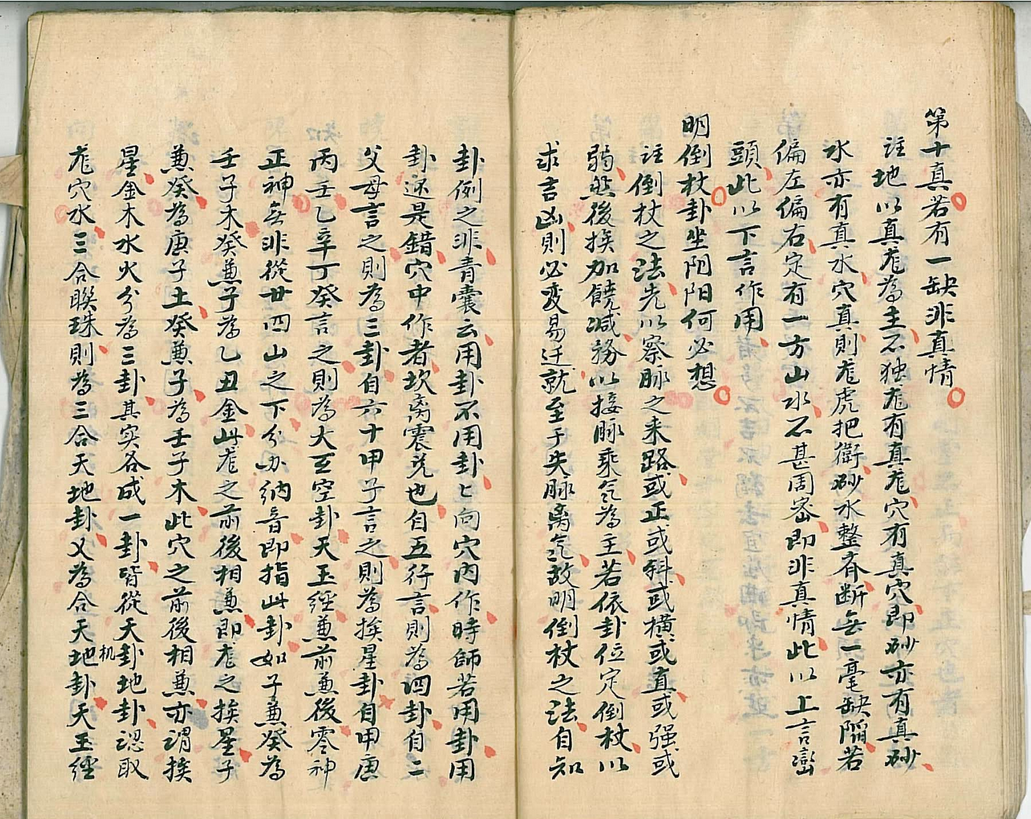 第十真若有一缺非真情
註地以真龙為主不独龙有真龙穴有真穴即砂亦有真砂
水亦有真水穴真則龙虎把衛砂水整齐断無一毫缺陷若
偏左偏右定有一方山水不甚周密即非真情此以上言巒
頭此以下言作用
明倒杖卦坐阴阳何必想
註倒杖之法先以察脉之来路或正或斜或横或直或强或
弱然後挨加饒减務以接脉乘氣為主若依卦位定倒杖以
求吉凶則必变易迁就至于失脉离氣故明倒杖之法自知
卦例之非青囊云用卦不用卦卜向穴內作時師若用卦用
卦还是錯穴中作者坎离震兑也自五行言則為四卦自二
父母言之則為三卦自六十甲子言之則為挨星卦自甲庚
丙壬乙辛丁癸言之則為大玄空卦天玉經兼前兼後零神
正神無非從廿四山之下分办納音即指此卦如子兼癸為
壬子木癸兼子為乙丑金此龙之前後相兼即龙之挨星子
兼癸為庚子土癸兼子為壬子木此穴之前後相兼亦謂挨
星金木水火分為三卦其实各成一卦皆從天卦地卦認取
龙穴水三合聯珠則為三合天地卦又為合天机地卦天玉經